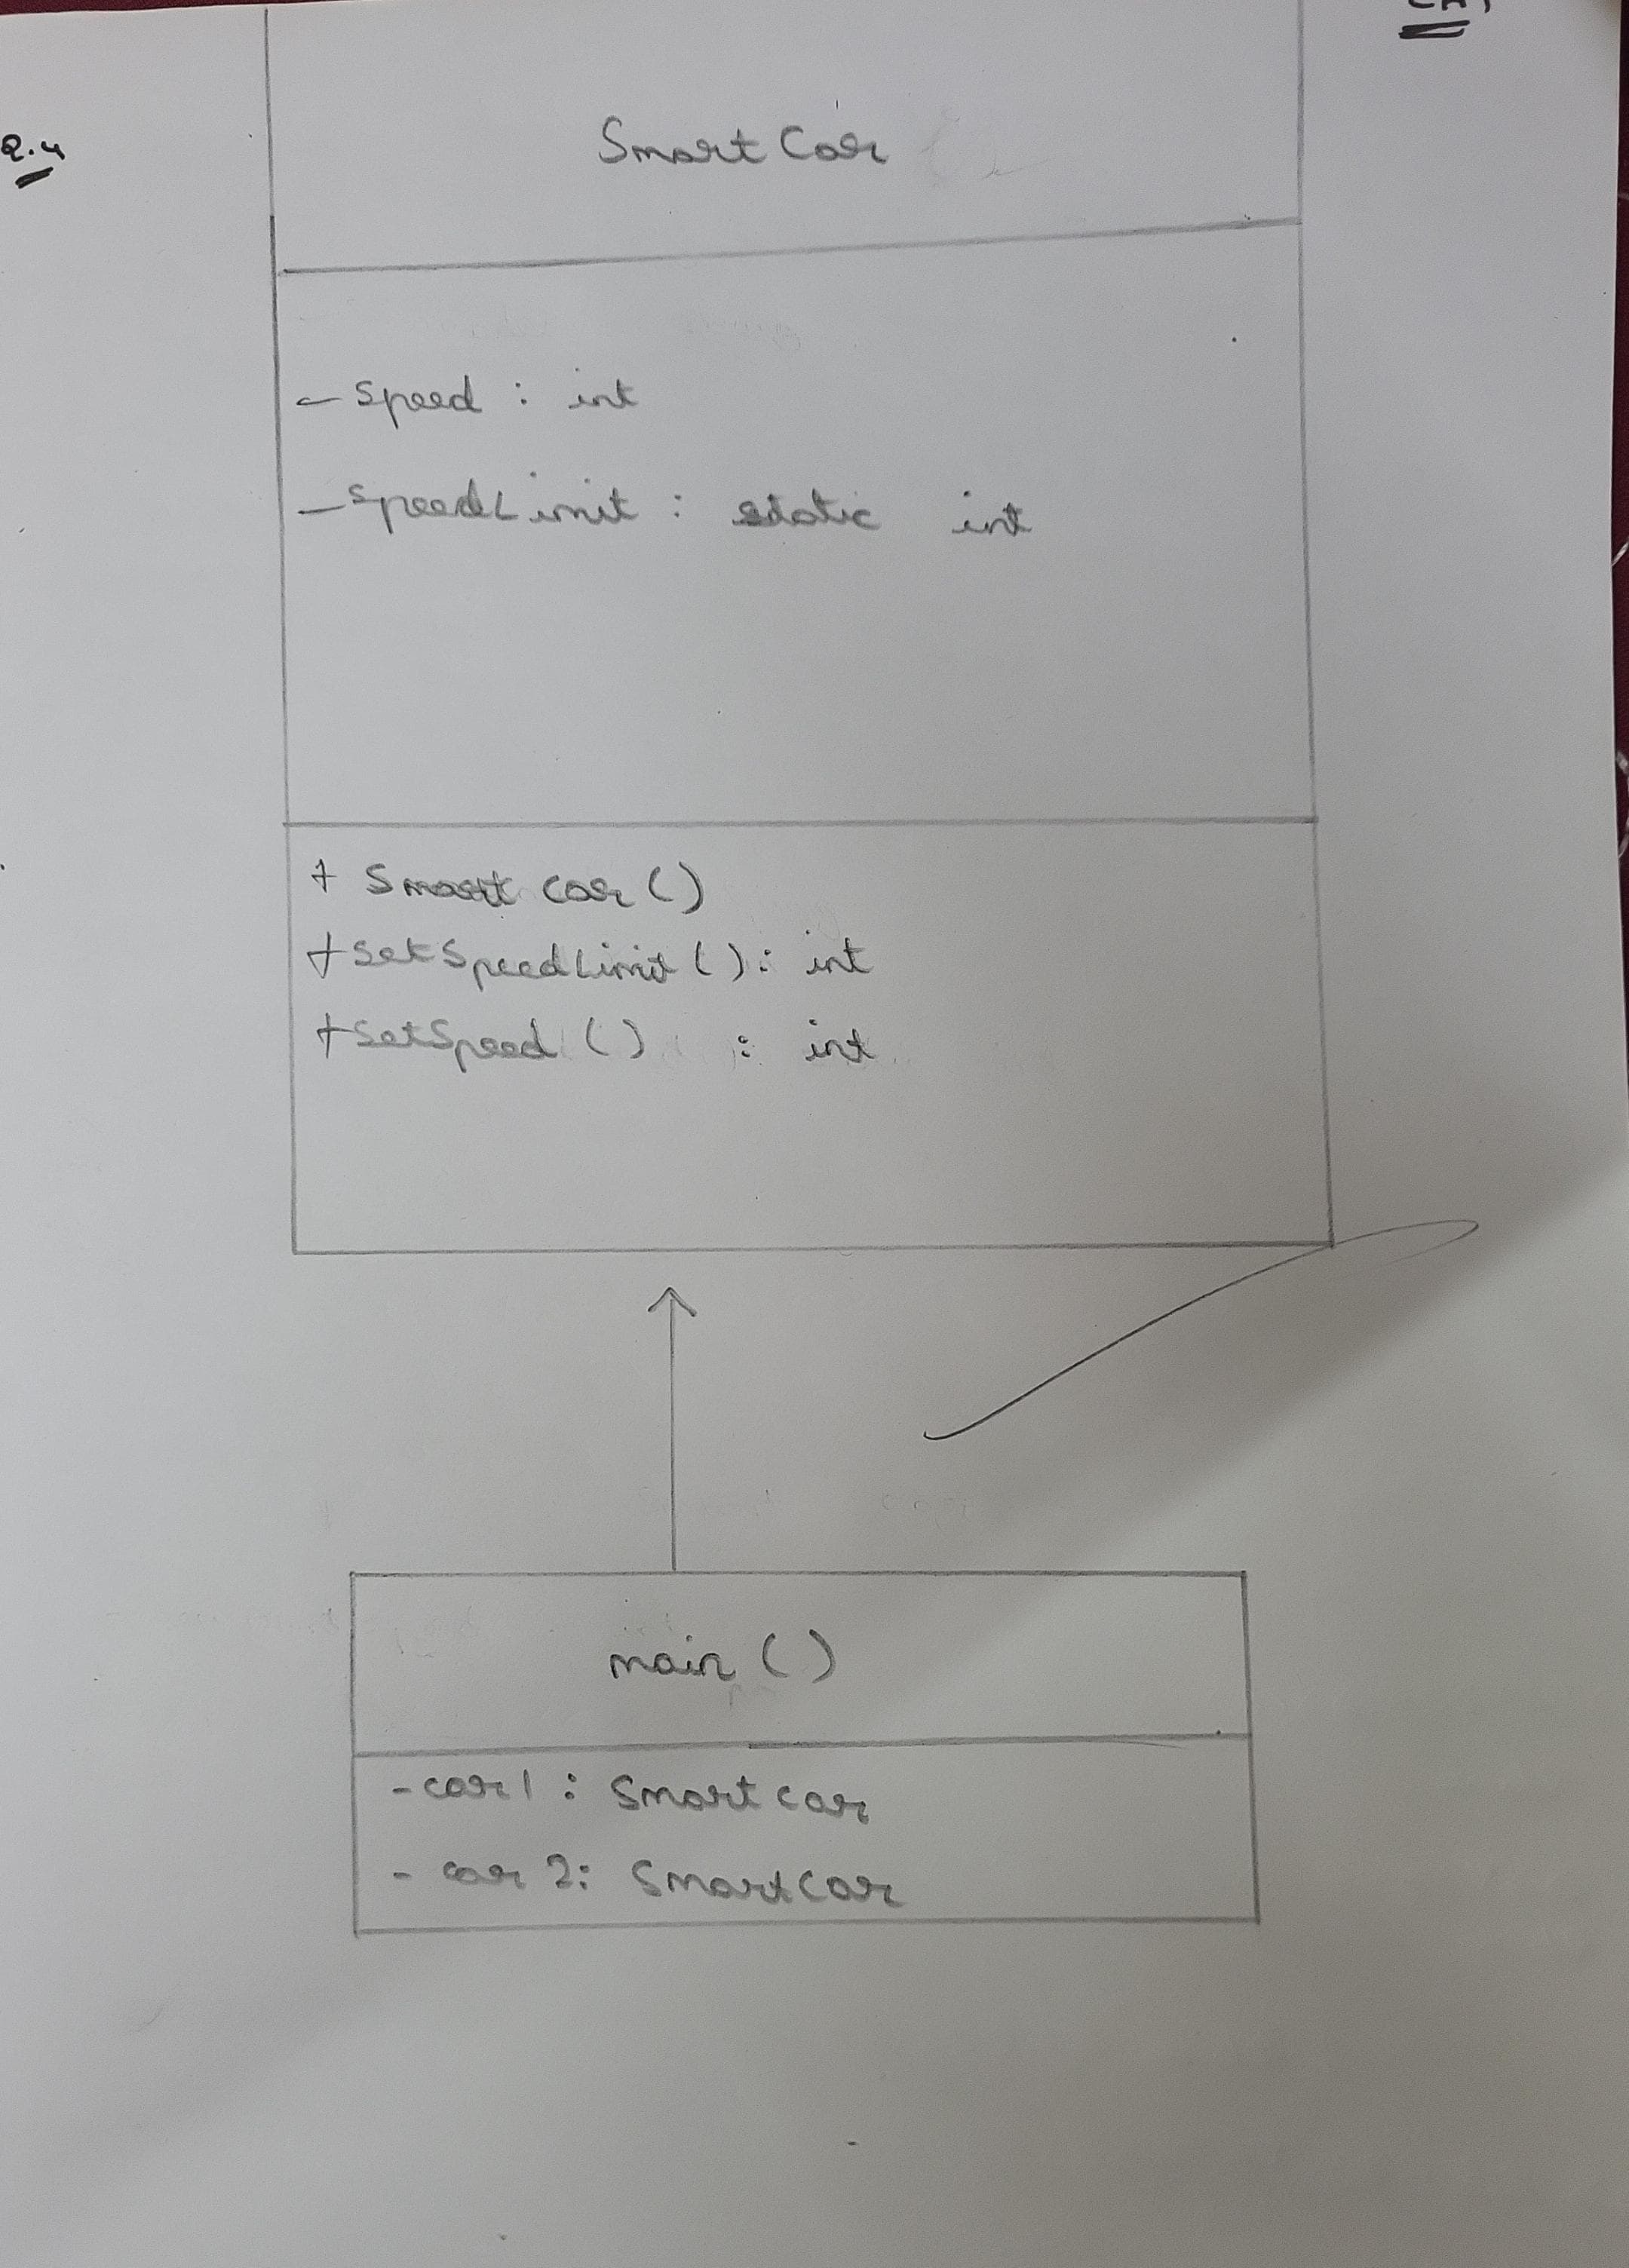 Q.4
Smart Car
- Speed : int
- SpeedLimit : static int
+ Smart car ()
+ SetSpeedLimit () : int
+ SetSpeed () : int
main ()
- car 1 : Smart car
- car 2 : SmartCar